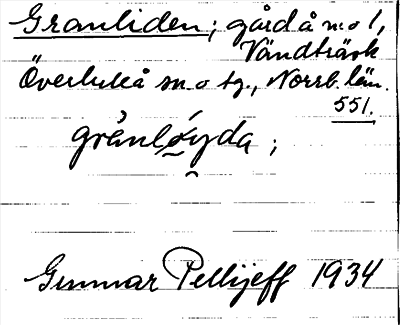 Granliden; gård å n:o 1,
Vändträsk
Överluleå sn o tg., Norrb. län.
551.
grànlǿyda ;
Gunnar Pellijeff 1934